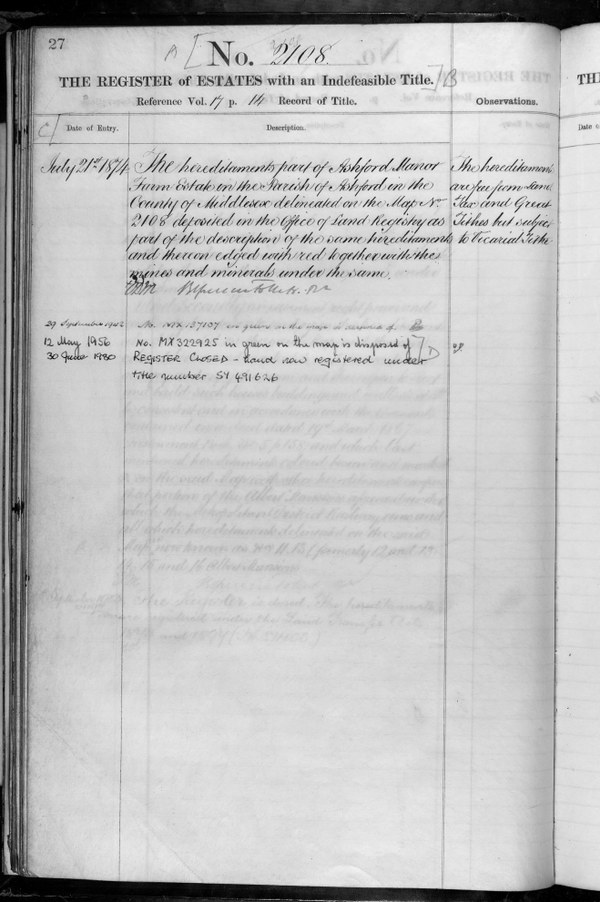 27
A [
No. 2108.
THE REGISTER of ESTATES with an Indefeasible Title. ] B
Reference Vol. 17 p. 14 Record of Title.
Observations.
C [ Date of Entry.
Description.
July 21st 1874
The hereditaments part of Ashford Manor
Farm Estate in the Parish of Ashford in the
County of Middlesex delineated on the Map No.
2108 deposited in the Office of Land Registry as
part of the description of the same hereditaments
and thereon edged with red together with the
mines and minerals under the same.
The hereditaments
are free from Land
Tax and Great
Tithes but subject
to Vicarial Tithe
29 September 1942
No. MX 137107 in green on the map is disposed of
12 May 1956
No. MX322925 in green on the map is disposed of ] D
30 June 1980
REGISTER CLOSED - land now registered under
title number SY 491626
THE
Date